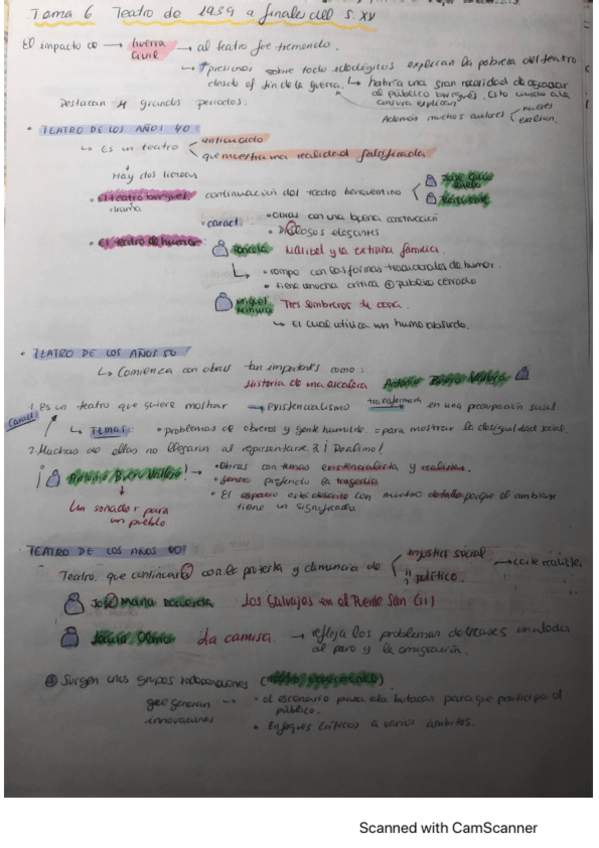 Tema 6 Teatro de 1939 a finales del s. XX
El impacto de → Guerra Civil → al teatro fue tremendo.
→ presiones sobre todo ideológicas explican la pobreza del teatro
desde el fin de la guerra. ↳ habría una gran necesidad de
al público burgués. Esto unido a la
censura explican
Destacan 4 grandes periodos.
Además muchos autores < mueren
exilian.
• TEATRO DE LOS AÑOS 40
↳ Es un teatro < anticuado
que muestra una realidad falsificada
Hay dos líneas
• El teatro burgués continuación del teatro benaventino
drama
• caract. • Obras con una buena construcción
• Diálogos elegantes
• El teatro de humor:
Maribel y la extraña familia
↳ • rompe con las formas tradicionales de humor.
• tiene mucha crítica público cerrado
Miguel Mihura Tres sombreros de copa.
↳ El cual utiliza un humor absurdo.
• TEATRO DE LOS AÑOS 50
↳ Comienza con obras tan importantes como:
Historia de una escalera Antonio Buero Vallejo
1. Es un teatro que quiere mostrar → existencialismo transformará en una preocupación social
Caract
↳ Temas: • problemas de obreros y gente humilde. = para mostrar la desigualdad social.
2. Muchas de ellas no llegaron al representarse 3. ¡Realismo!
¡Antonio Buero Vallejo! → • Obras con temas existencialista y realistas.
• género preferido la tragedia
Un soñador para un pueblo
• El espacio está descrito con mucho detalle porque el ambiente
tiene un significado
TEATRO DE LOS AÑOS 60
Teatro que continuará con la protesta y denuncia de < injusticia social
" político
→ corte realista
José María Los Salvajes en el Puente San Gil
Lauro Olmo La camisa. → refleja los problemas de clases unidada
al paro y la emigración.
Surgen unos grupos independientes
que generan innovaciones
• el escenario pasa a la butacas para que participe el
público.
• Enfoques críticos a varios ámbitos.
Scanned with CamScanner